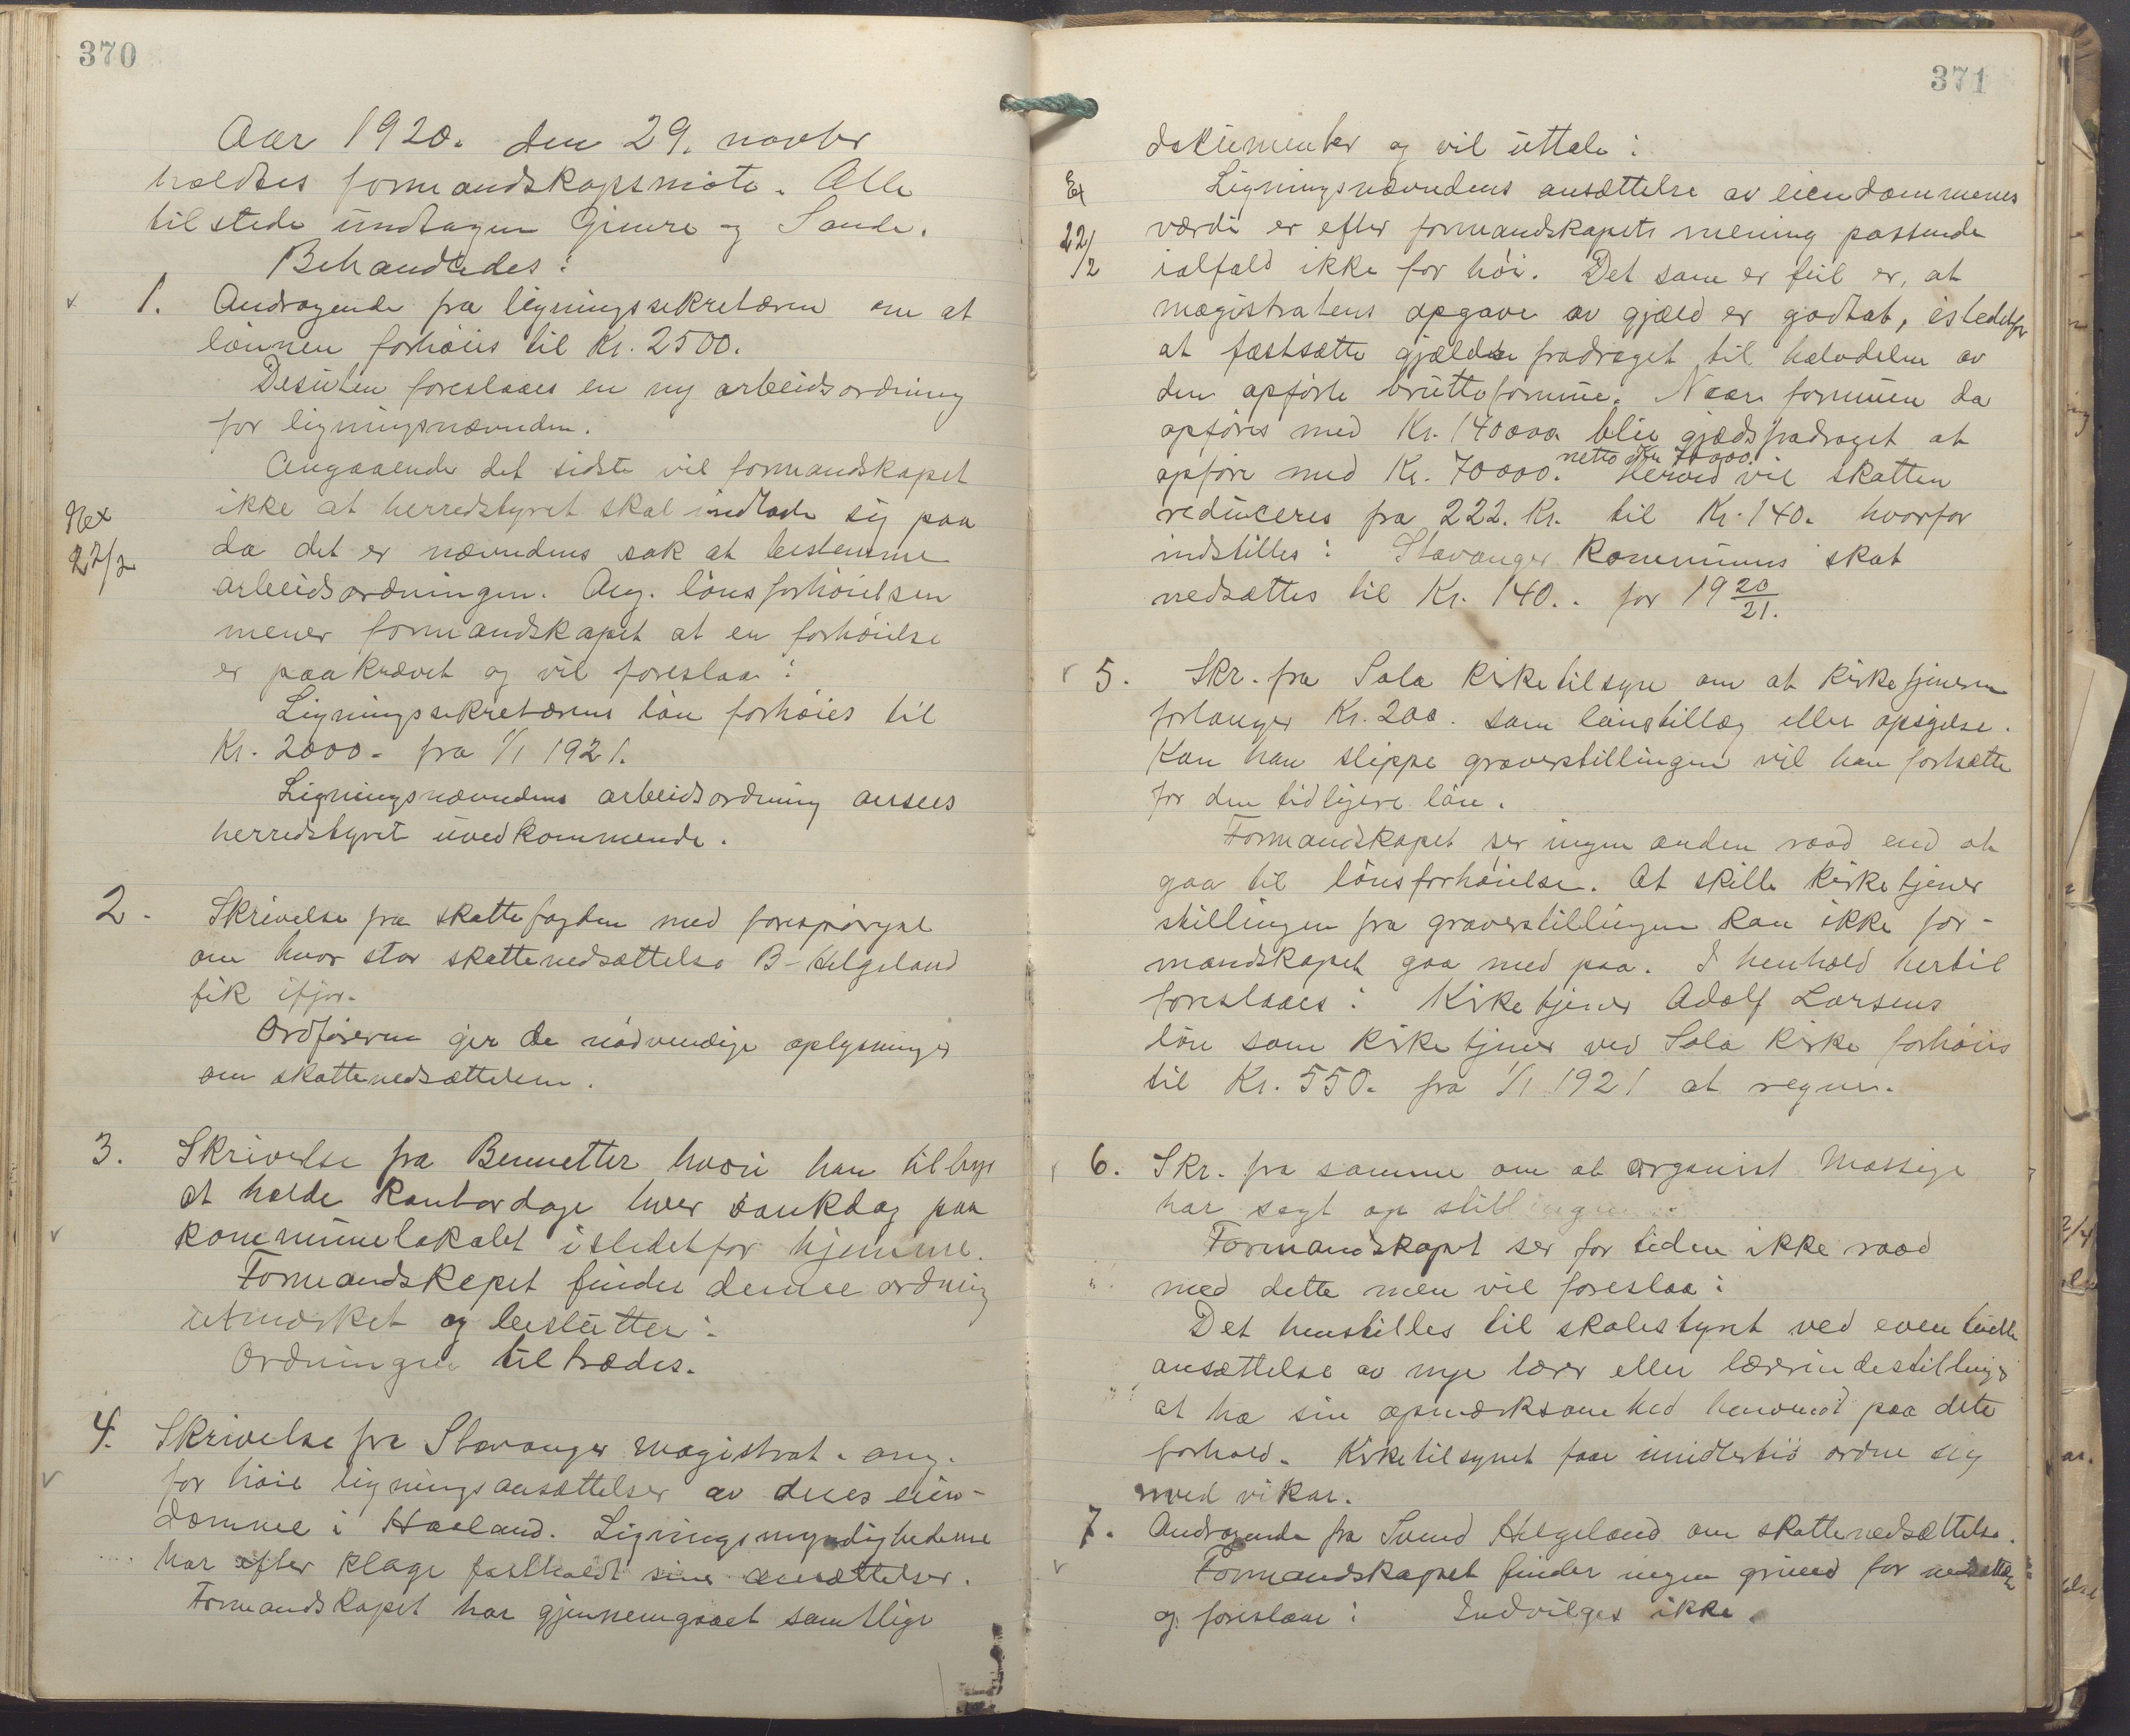 370
Aar 1920. den 29. novbr
holdtes formandskapsmöte. Alle
tilstede undtagen Gimre og Sande.
Behandledes:
1. Andragende fra ligningssekretæren om at
lönnen forhöies til Kr. 2500.
Desuten foreslaaes en ny arbeidsordning
for ligningsnævnden.
Angaaende det sidste vil formandskapet
ikke at herredstyret skal indlade sig paa
da det er nævndens sak at bestemme
arbeidsordningen. Ang. lönsforhöielsen
mener formandskapet at en forhöielse
er paakrævet og vil foreslaa:
Ligningssekretærens lön forhöies til
Kr. 2000.- fra 1/1 1921.
Ligningsnævndens arbeidsordning ansees
herredstyret uvedkommende.
Ex
22/2
2. Skrivelse fra skattefogden med forespörgsel
om hvor stor skattenedsættelse B. Helgeland
fik ifjor.
Ordföreren gir de nödvendige oplysninger
om skattenedsættelsen.
3. Skrivelse fra Bennetter hvori han tilbyr
at holde kontordage hver sankdag paa
kommunelokalet istedetfor hjemme.
Formandskapet finder denne ordning
utmerket og beslutter:
Ordningen tiltrædes.
4. Skrivelse fra Stavanger Magistrat. ang.
for höie ligningsansættelser av deres eien-
domme i Haaland. Ligningsmyndighederne
har efter klage fastholdt sine ansættelser.
Formandskapet har gjennemgaaet samtlige
371
dokumenter og vil uttale:
Ex
22/2
Ligningsnævndens ansættelse av eiendommenes
værdi er efter formandskapets mening passende
ialfald ikke for höi. Det som er feil er, at
magistratens opgave av gjæld er godtat, istedetfor
at fastsætte gjældsfradraget til halvdelen av
den opförte bruttoformue. Naar formuen da
opföres med Kr. 140000 blir gjældsfradraget at
opföre med Kr. 70000. netto Kr 70000. Herved vil skatten
reduceres fra 222. Kr. til Kr. 140. hvorfor
indstilles: Stavanger Kommunes skat
nedsættes til Kr. 140.. for 1920/21.
5. Skr. fra Sola Kirketilsyn om at kirketjeneren
forlanger Kr. 200. som lönstillæg eller opsigelse.
Kan han slippe graverstillingen vil han fortsætte
for den tidligere lön.
Formandskapet ser ingen anden raad end at
gaa til lönsforhöielse. At skille kirketjener
stillingen fra graverstillingen kan ikke for-
mandskapet gaa med paa. I henhold hertil
foreslaaes: Kirketjener Adolf Larsens
lön som kirketjener ved Sola Kirke forhöies
til Kr. 550. fra 1/1 1921 at regne.
6. Skr. fra samme om at organist Massige
har sagt op stillingen.
Formandskapet ser for tiden ikke raad
med dette men vil foreslaa:
Det henstilles til skolestyret ved eventuelle
ansættelse av nye lærer eller lærerindestillinger
at ha sin opmerksomhed henvendt paa dette
forhold. Kirketilsynet faar imidlertid ordne sig
med vikar.
7. Andragende fra Svend Helgeland om skattenedsættelse.
Formandskapet finder ingen grund for nedsættelse
og foreslaar: Indvilges ikke.